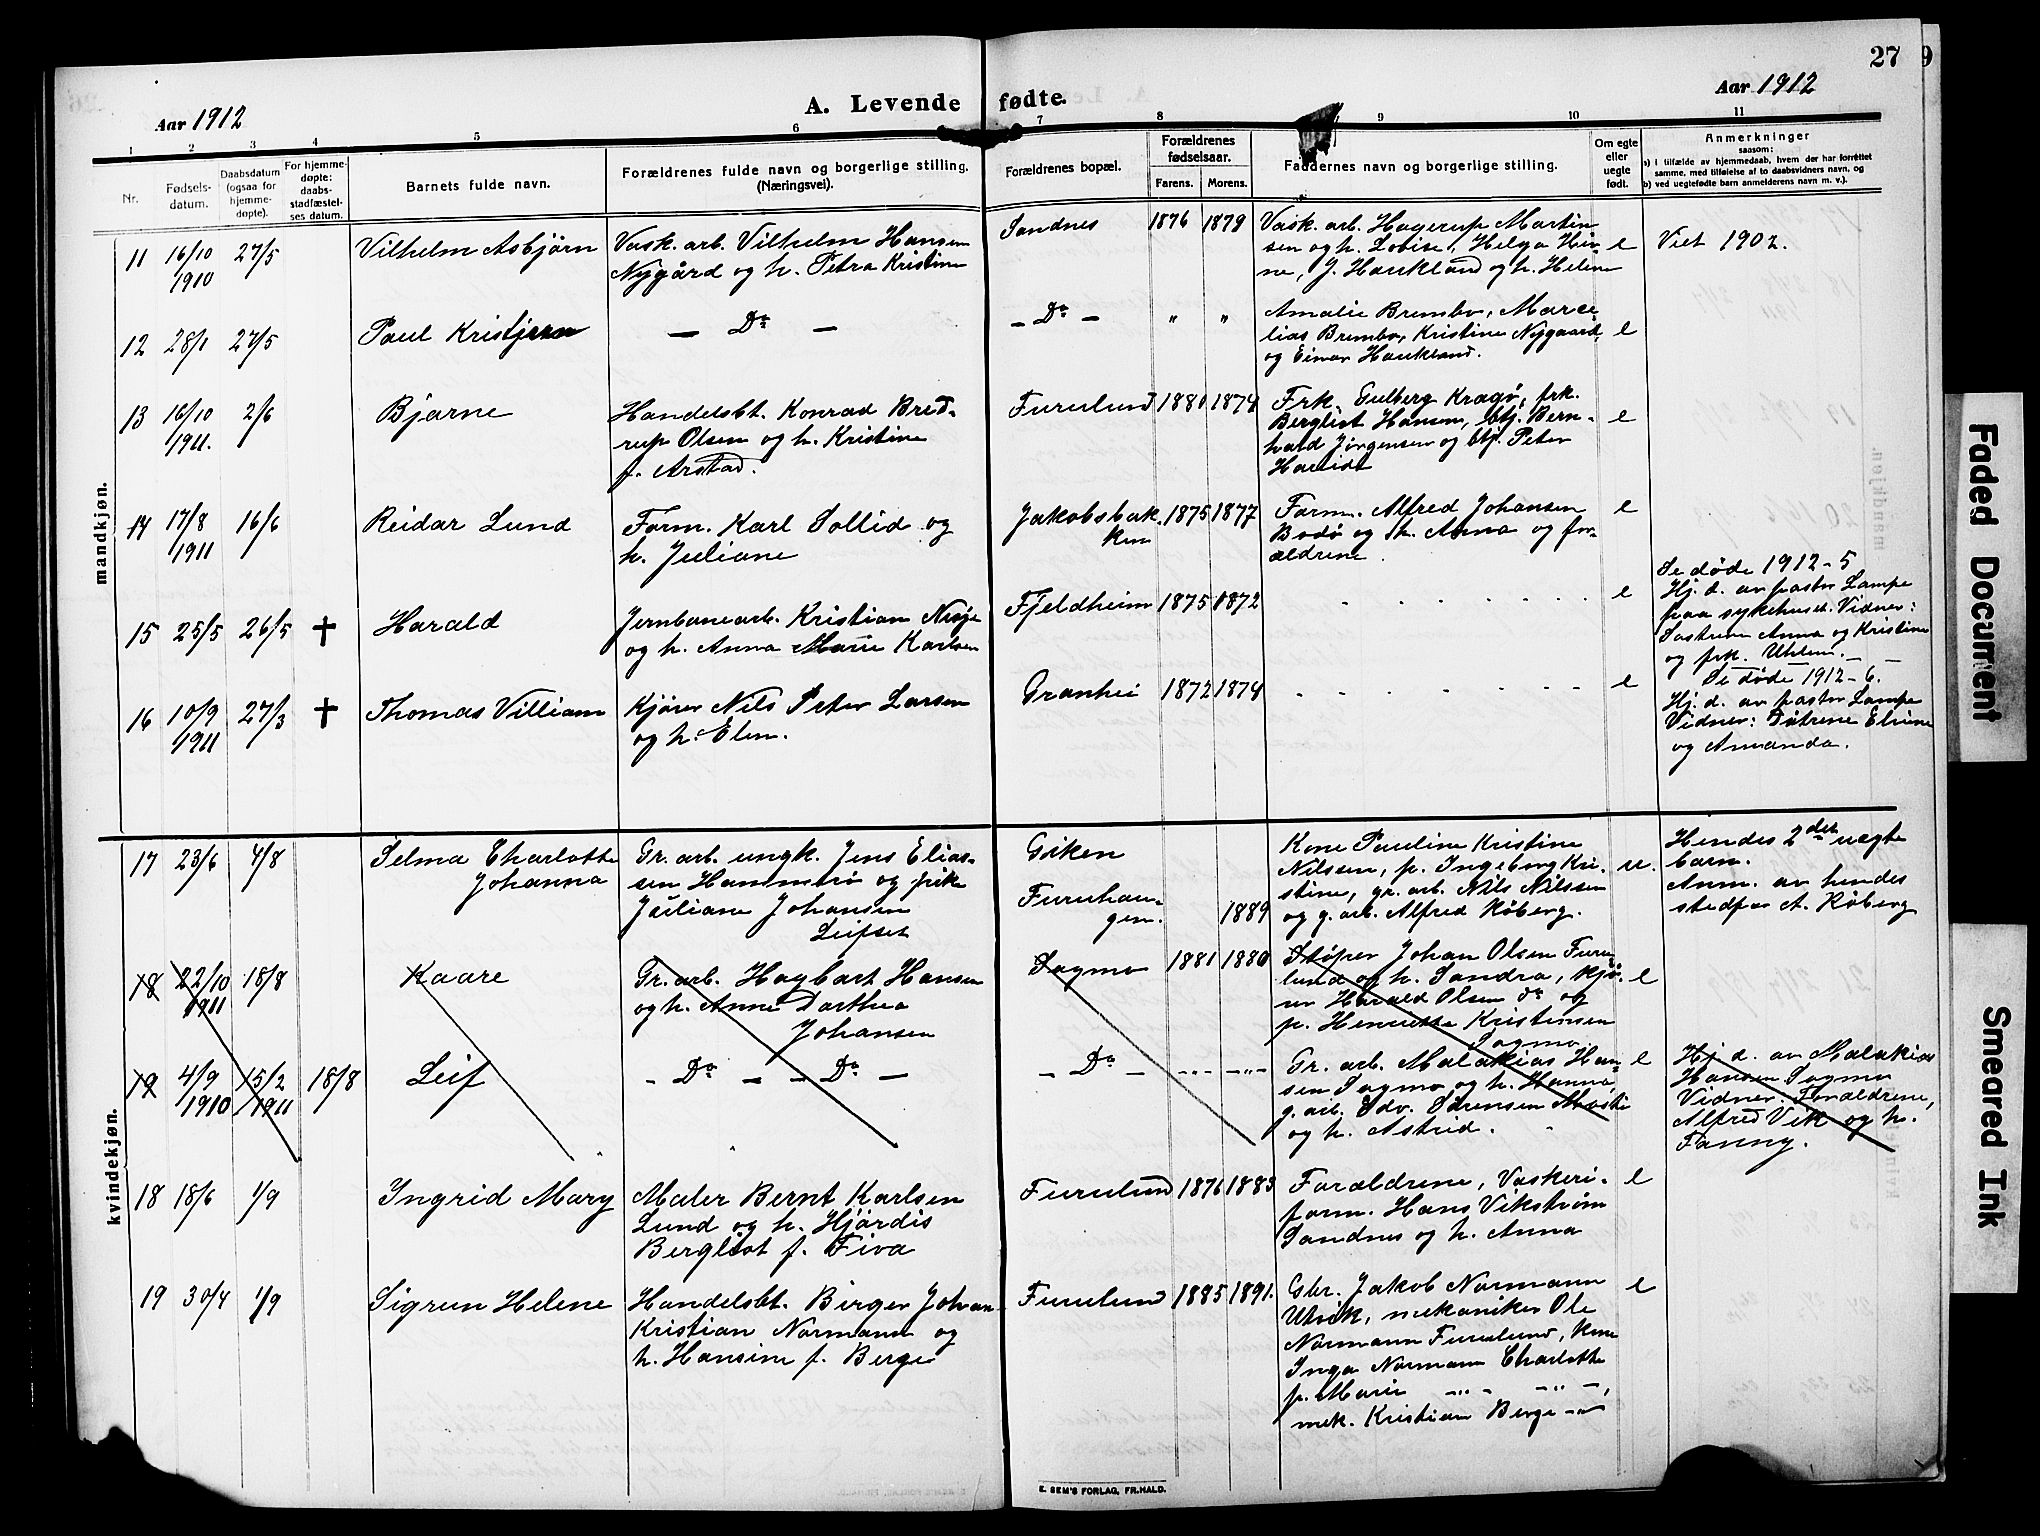 27 9
Aar 1912
A. Levende fødte.
Aar 1912
1 2 3 4 5 6 7 8 9 10 11
Nr.
Fødsels-
datum.
Daabsdatum
(ogsaa for
hjemme-
døpte).
For hjemme-
døpte:
daabs-
stadfæstel-
ses datum.
Barnets fulde navn.
Forældrenes fulde navn og borgerlige stilling.
(Næringsvei).
Forældrenes bopæl.
Forældrenes
fødselsaar.
Farens. Morens.
Faddernes navn og borgerlige stilling.
Om egte
eller
uegte
født.
Anmerkninger
saasom:
a) i tilfælde av hjemmedaab, hvem der har forrettet
samme, med tilføielse af to daabsvidners navn, og
b) ved uegtefødte barn anmelderens navn m. v.).
mandkjøn.
11 16/10 1910 27/5
Vilhelm Asbjørn
Vask. arb. Vilhelm Hansen
Nygård og h. Petra Kristine
Sandnes 1876 1879
Vask. arb. Hagerup Martin
sen og h. Lovise, Helga Hei
ne, J. Haukland og h. Helene
e
Viet 1902.
12 28/1 27/5
Paul Kristjern
— Do —
– Do – " "
Amalie Brembo, Marce
lias Brembo, Kristine Nygaard,
og Einar Haukland.
e
13 16/10 1911. 2/6
Bjarne
Handelsbt. Konrad Bred-
rup Olsen og h. Kristine
f. Arstad.
Furulund 1880 1874
Frk. Gulberg Kragø, frk.
Bergliot Hansen, btj. Bern-
hard Jørgensen og btj. Peter
e
14 17/8 1911 16/6
Reidar Lund
Form. Karl Sollid og
h. Juliane
Jakobsbak
ken 1875 1877
Form. Alfred Johansen
Bodø og h. Anna og for-
ældrene.
e
15 25/5 26/5 ✝
Harald
Jernbanearb. Kristian Nesje
og h. Anna Marie Karlsen
Fjeldheim 1875 1872
. . . . . . . .
e
Se døde 1912-5
Hj. d. av pastor Lampe
paa sykehuset. Vidner:
Søstrene Anna og Kristine
og frk.
16 10/9 1911 27/3 ✝
Thomas Villiam
Kjører Nils Peter Larsen
og h. Elen.
Granhei 1872 1874
. . . . . . . .
e
Se døde 1912-6.
Hj. d. av pastor Lampe
Vidner: Døtrene Elvine
og Amanda.
kvindekjøn.
17 23/6 4/8
Selma Charlotte
Johanna
Gr. arb. ungk. Jens Elias-
sen Hammerø og pike
Juliane Johansen
Leifset
Giken
Furuhau-
gen. 1889
Kone Pauline Kristine
Nilssen, p. Ingeborg Kri-
stine, gr. arb. Nils Nilssen
og g. arb. Alfred Røberg.
u.
Hendes 2det uegte
barn.
Anm. av hendes
stedfar A. Røberg
18 22/10 1911 18/8
Kaare
Gr. arb. Hagbart Hansen
og h. Anne Dorthea
Johansen
Sagmo 1881 1880
Støper Johan Olsen Furu
lund og h. Sandra, kjø-
rer Harald Olsen do og
p. Henriette Kristensen
Sagmo.
e
19 4/9 1910 15/2 1911 18/8
Leif
– Do – – Do –
– Do –
Gr. arb. Malakias Han-
sen Sagmo og h. Hanna,
g. arb. Edv. Sørensen
og h. Astrid.
e
Hj. d. av Malakias
Hansen Sagmo
Vidner: Forældrene,
Alfred Vik og h.
Fanny.
18 18/6 1/9
Ingrid Mary
Maler Bernt Karlsen
Lund og h. Hjørdis
Bergliot f. Fiva
Furulund 1876 1883
Forældrene, Vaskeri-
form. Hans Vikstrøm
Sandnes og h. Anna
e
19 30/4 1/9
Sigrun Helene
Handelsbt. Birger Johan
Kristian Normann og
h. Hansine f. Berge
Furulund 1885 1891.
Gbr. Jakob Normann
Utvik, mekaniker Ole
Normann Furulund, kone
Inga Normann Charlotte
p. Marie –"– –"–,
mek. Kristian Berge –"–
e
E. SEM'S FORLAG, FR.HALD.
Faded Document
Smeared Ink